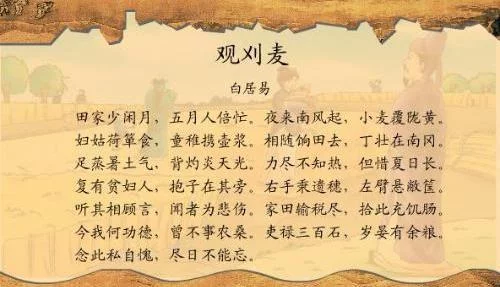 观刈麦
白居易
田家少闲月，五月人倍忙。夜来南风起，小麦覆陇黄。
妇姑荷箪食，童稚携壶浆。相随饷田去，丁壮在南冈。
足蒸暑土气，背灼炎天光。力尽不知热，但惜夏日长。
复有贫妇人，抱子在其旁。右手秉遗穗，左臂悬敝筐。
听其相顾言，闻者为悲伤。家田输税尽，拾此充饥肠。
今我何功德，曾不事农桑。吏禄三百石，岁晏有余粮。
念此私自愧，尽日不能忘。